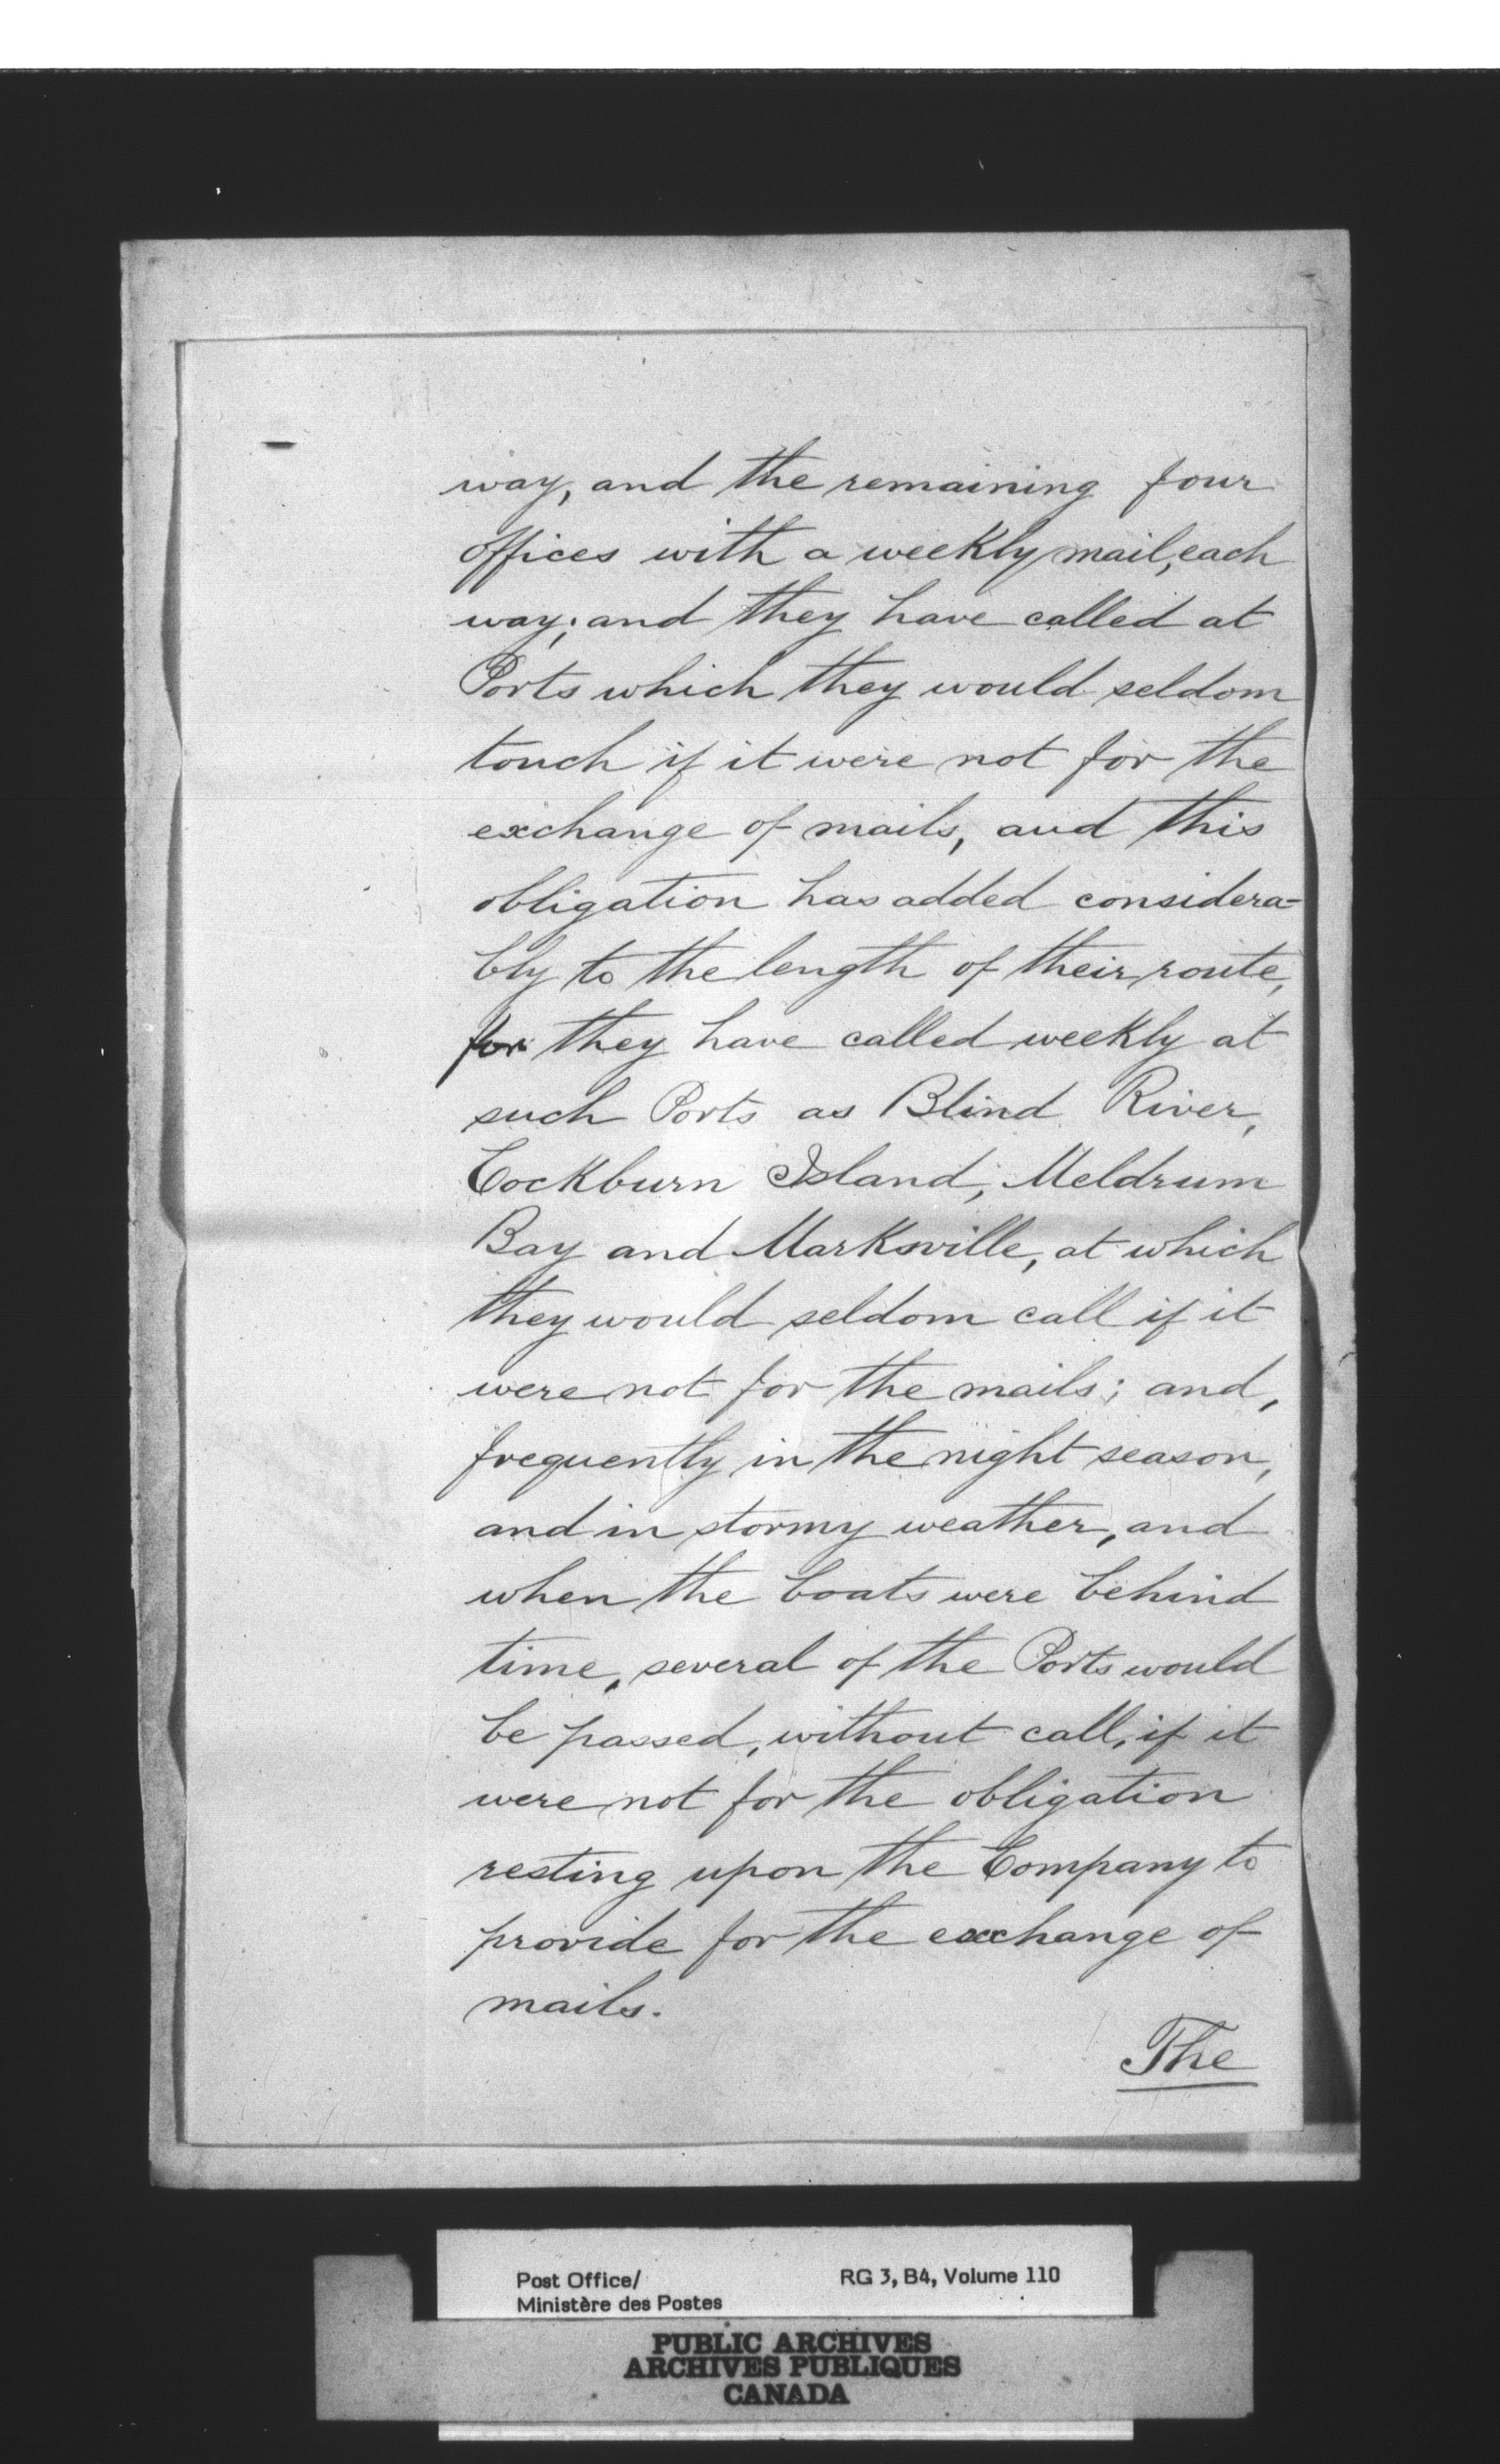 way, and the remaining four
offices with a weekly mail, each
way; and they have called at
Ports which they would seldom
touch if it were not for the
exchange of mails, and this
obligation has added considera=
bly to the length of their route,
for they have called weekly at
such Ports as Blind River,
Cockburn Island, Meldrum
Bay and Marksville, at which
they would seldom call if it
were not for the mails; and,
frequently in the night season,
and in stormy weather, and
when the boats were behind
time, several of the Ports would
be passed, without call, if it
were not for the obligation
resting upon the Company to
provide for the exchange of
mails.
The
Post Office/ RG 3, B4, Volume 110
Ministère des Postes
PUBLIC ARCHIVES
ARCHIVES PUBLIQUES
CANADA